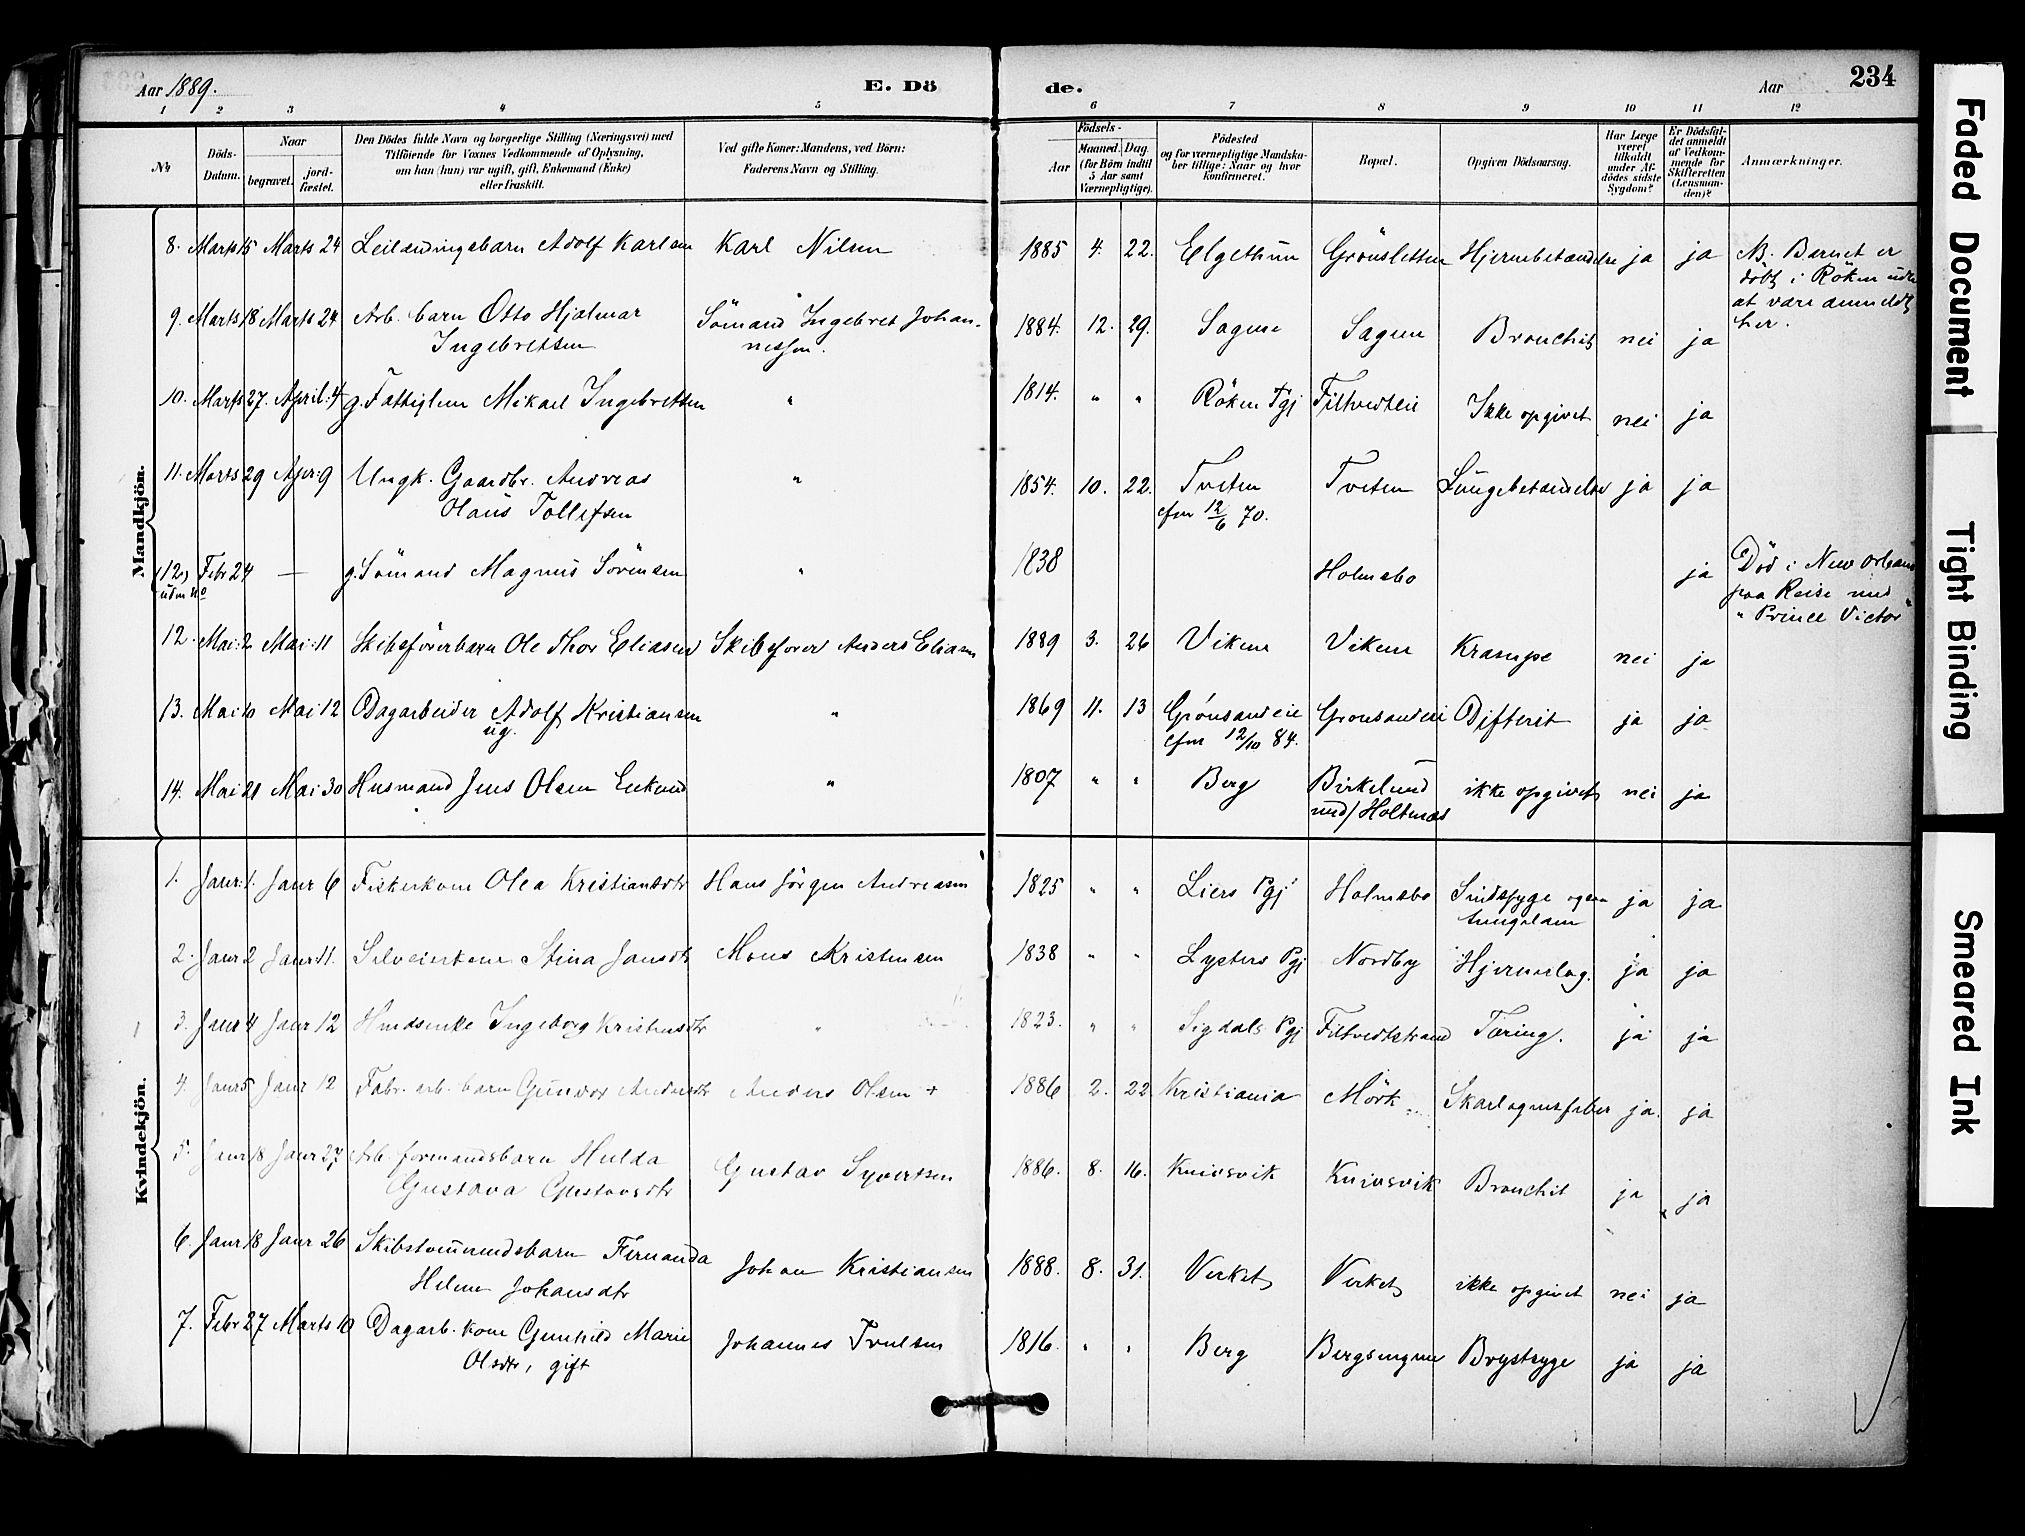 Aar 1889. E. Dö de. Aar 234
1 2 3 4 5 6 7 8 9 10 11 12
№ Döds-Datum. Naar begravet. jordfæstet. Den Dödes fulde Navn og borgerlige Stilling (Næringsvei) med Tilföiende for Voxnes Vedkommende af Oplysning, om han (hun) var ugift, gift, Enkemand (Enke) eller fraskilt. Ved gifte Koner: Mandens, ved Börn: Faderens Navn og Stilling. Födsels- Aar Maaned. Dag. (for Börn indtil 5 Aar samt Værnepligtige). Födested og for værnepligtige Mandskaber tillige: Naar og hvor konfirmeret. Bopæl. Opgiven Dödsaarsag. Har Læge været tilkaldt under Afdödes sidste Sygdom? Er Dödsfaldet anmeldt af Vedkommende for Skifteretten (Lensmanden)? Anmærkninger.
Mandkjön.
8. Marts 15 Marts 24 Leilændingsbarn Adolf Karlsen Karl Nilsen 1885 4. 22. Elgethun Grönsletten Hjernebetændelse ja ja NB. Barnet er
död i Röken uden
at være anmeldt
her.
9. Marts 18 Marts 24 Arb. barn Otto Hjalmar Sömand Ingebret Johan- 1884. 12. 29. Sagene Sagene Bronchit nei ja
Ingebretsen nessen.
10. Marts 27. April: 4 g. Fattiglem Mikael Ingebretsen " 1814. " " Röken Pgj Filtvedteie Ikke opgivet nei ja
11. Marts 29 Apr: 9 Ungk. Gaardbr. Andreas " 1854. 10. 22. Tveten Tveten Lungebetændelse ja ja
Olaus Tollefsen cfm 12/6 70.
(12) Febr 24 — g. Sömand Magnus Sörensen " 1838 Holmsbo ja Död i New Orleans
uden no paa Reise med
"Prince Victor"
12. Mai: 2 Mai: 11 Skibsförerbarn Ole Thor Eliasen Skibsfører Anders Eliasen 1889 3. 26 Viken Viken Krampe nei ja
13. Mai 10 Mai 12 Dagarbeider Adolf Kristiansen " 1869 11. 13 Grønsandeie Gronsandeie Difterit ja ja
ug. cfm 12/10 84.
14. Mai 21 Mai 30 Husmand Jens Olsen Enkemd " 1807 " " Berg Birkelund ikke opgivet nei ja
und/ Holtnæs
Kvindekjön.
1. Janr: 1. Janr 6 Fiskerkone Olea Kristiansdtr Hans Jörgen Andreasen 1825 " " Liers Pgj Holmsbo Sindssyge og ja ja
2. Janr 2 Janr 11. Selveierkone Stina Jansdtr Mons Kristensen 1838 " " Lysters Pgj Nordby Hjerneslag. ja ja
3. Janr 4 Janr 12 Ingeborg Kristensdtr " 1823. " " Sigdals Pgj Filtvedtstrand Tæring. ja ja
4. Janr 5 Janr 12 Fabr. arb. barn Gunvor Andersdtr Anders Olsen + 1886 2. 22 Kristiania Mörk Skarlagensfeber ja. ja
5. Janr 18 Janr 27 Arb. formandsbarn Hulda Gustav Syvertsen 1886. 8. 16. Knivsvik Knivsvik Bronchit ja ja
Gustava Gustavsdtr
6. Janr 18 Janr 26 Skibstømmendsbarn Fernanda Johan Kristiansen 1888. 8. 31. Verket Verket ikke opgivet nei ja
Helene Johansdtr
7. Febr 27 Marts 10 Dagarb. kone Gunhild Marie Johannes Truelsen 1816. " " Berg Bergsengene Brystsyge ja ja
Olsdtr, gift
Faded Document
Tight Binding
Smeared Ink